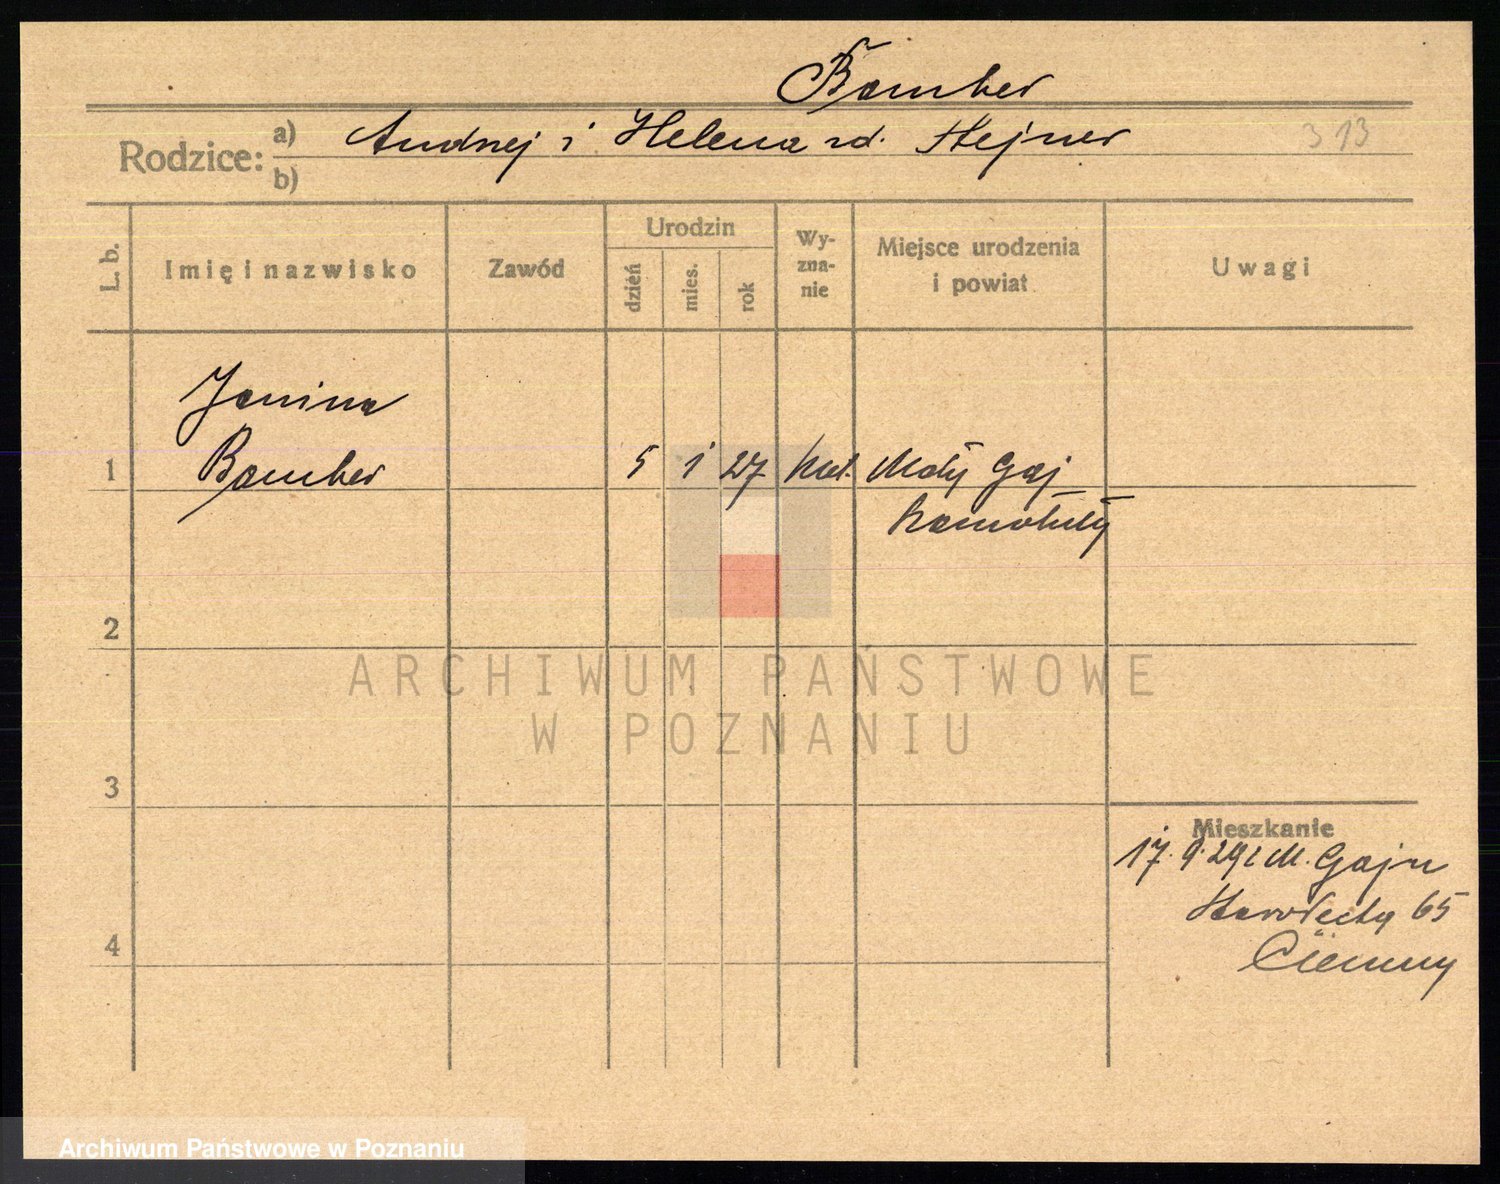 Bamber
Rodzice: a) Andrzej i Helena zd. Stejner
b)
313
L. b. Imię i nazwisko Zawód Urodzin dzień mies. rok Wyznanie Miejsce urodzenia i powiat Uwagi
Janina
1 Bamber 5 1 27 kat. Mały Gaj
Szamotuły
2
ARCHIWUM PAŃSTWOWE
W POZNANIU
3
Mieszkanie
17. 9. 29 z M. Gaju
65
4
Archiwum Państwowe w Poznaniu